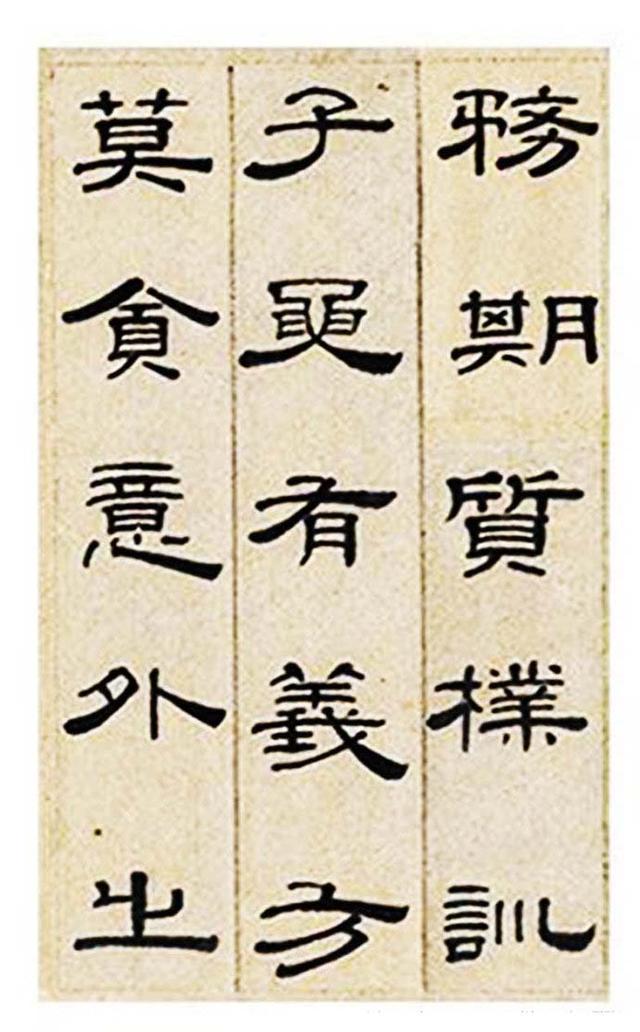 務期質樸訓
子要有義方
莫貪意外之